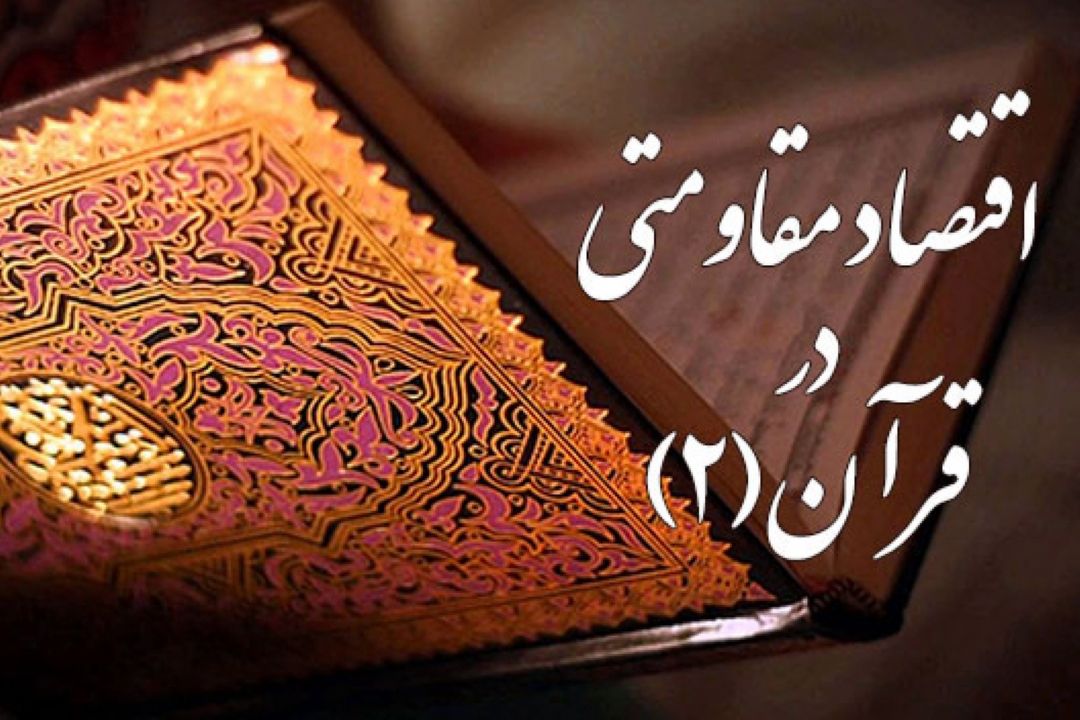 اقتصاد مقاومتی
در
قرآن (۲)